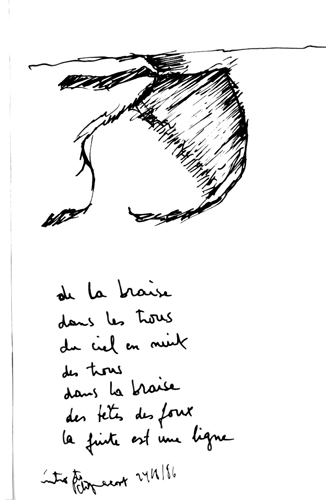 de la braise
dans les trous
du ciel en nuit
des trous
dans la braise
des têtes des foux
la fuite est une ligne